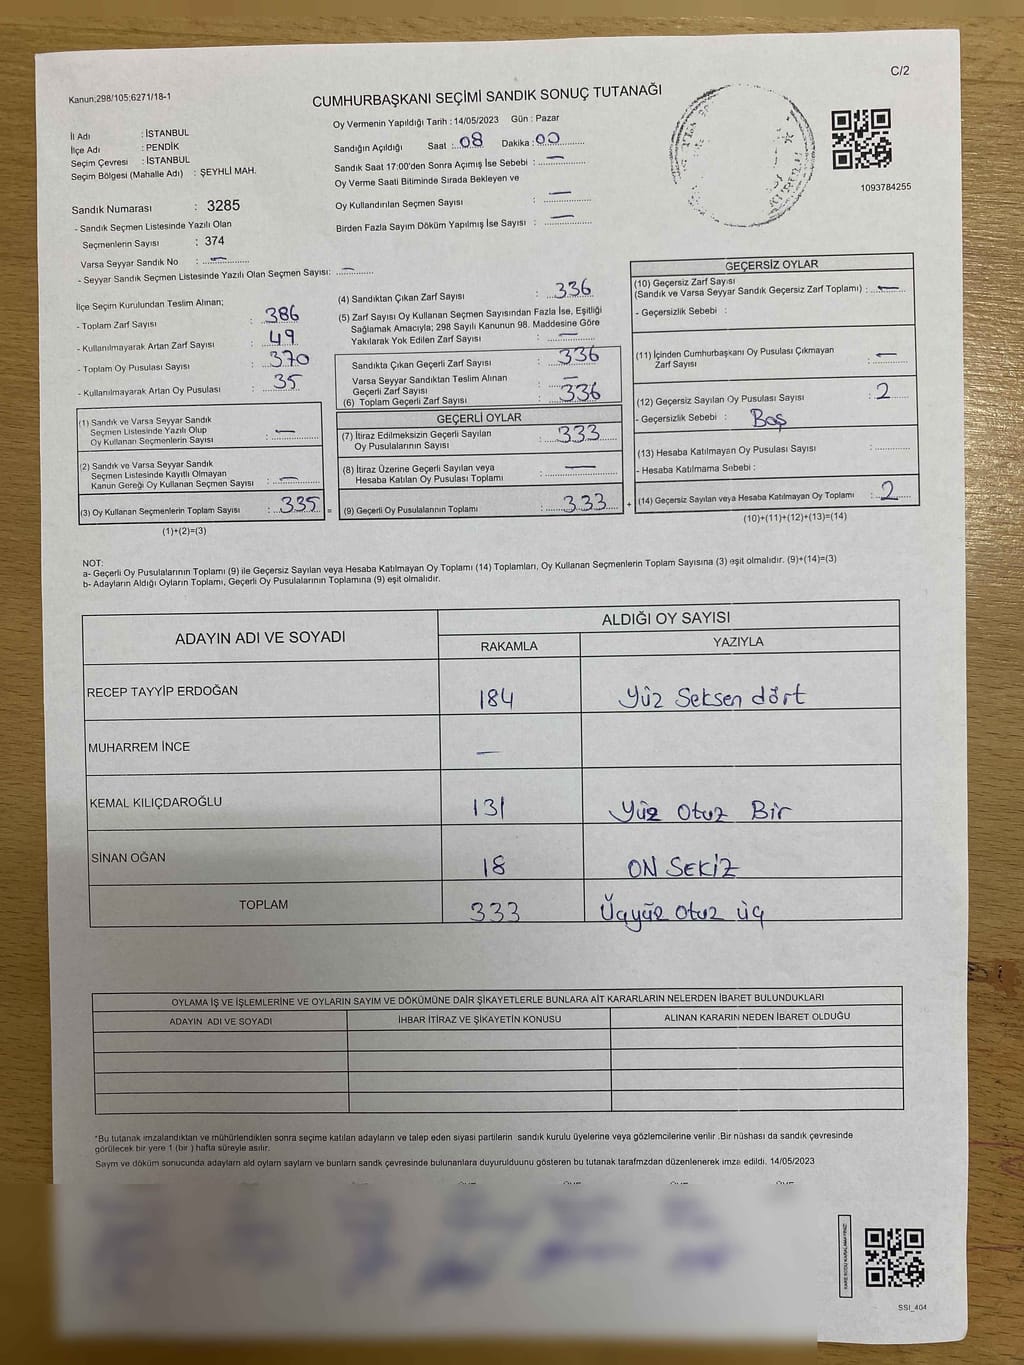 C/2
Kanun:298/105;6271/18-1
CUMHURBAŞKANI SEÇİMİ SANDIK SONUÇ TUTANAĞI
İl Adı : İSTANBUL
İlçe Adı : PENDİK
Seçim Çevresi : İSTANBUL
Seçim Bölgesi (Mahalle Adı) : ŞEYHLİ MAH.
Sandık Numarası : 3285
- Sandık Seçmen Listesinde Yazılı Olan
Seçmenlerin Sayısı : 374
Varsa Seyyar Sandık No : —
- Seyyar Sandık Seçmen Listesinde Yazılı Olan Seçmen Sayısı: —
Oy Vermenin Yapıldığı Tarih : 14/05/2023 Gün : Pazar
Sandığın Açıldığı Saat : 08 Dakika : 00
Sandık Saat 17:00'den Sonra Açımış İse Sebebi : —
Oy Verme Saati Bitiminde Sırada Bekleyen ve
Oy Kullandırılan Seçmen Sayısı : —
Birden Fazla Sayım Döküm Yapılmış İse Sayısı : —
1093784255
İlçe Seçim Kurulundan Teslim Alınan;
- Toplam Zarf Sayısı : 386
- Kullanılmayarak Artan Zarf Sayısı : 49
- Toplam Oy Pusulası Sayısı : 370
- Kullanılmayarak Artan Oy Pusulası : 35
(1) Sandık ve Varsa Seyyar Sandık
Seçmen Listesinde Yazılı Olup
Oy Kullanan Seçmenlerin Sayısı : —
(2) Sandık ve Varsa Seyyar Sandık
Seçmen Listesinde Kayıtlı Olmayan
Kanun Gereği Oy Kullanan Seçmen Sayısı : —
(3) Oy Kullanan Seçmenlerin Toplam Sayısı : 335 =
(1)+(2)=(3)
(4) Sandıktan Çıkan Zarf Sayısı : 336
(5) Zarf Sayısı Oy Kullanan Seçmen Sayısından Fazla İse, Eşitliği
Sağlamak Amacıyla; 298 Sayılı Kanunun 98. Maddesine Göre
Yakılarak Yok Edilen Zarf Sayısı : —
Sandıkta Çıkan Geçerli Zarf Sayısı : 336
Varsa Seyyar Sandıktan Teslim Alınan
Geçerli Zarf Sayısı : —
(6) Toplam Geçerli Zarf Sayısı : 336
GEÇERLİ OYLAR
(7) İtiraz Edilmeksizin Geçerli Sayılan
Oy Pusulalarının Sayısı : 333
(8) İtiraz Üzerine Geçerli Sayılan veya
Hesaba Katılan Oy Pusulası Toplamı : —
(9) Geçerli Oy Pusulalarının Toplamı : 333 +
GEÇERSİZ OYLAR
(10) Geçersiz Zarf Sayısı
(Sandık ve Varsa Seyyar Sandık Geçersiz Zarf Toplamı) : —
- Geçersizlik Sebebi :
(11) İçinden Cumhurbaşkanı Oy Pusulası Çıkmayan
Zarf Sayısı : —
(12) Geçersiz Sayılan Oy Pusulası Sayısı : 2
- Geçersizlik Sebebi : Boş
(13) Hesaba Katılmayan Oy Pusulası Sayısı :
- Hesaba Katılmama Sebebi :
(14) Geçersiz Sayılan veya Hesaba Katılmayan Oy Toplamı : 2
(10)+(11)+(12)+(13)=(14)
NOT:
a- Geçerli Oy Pusulalarının Toplamı (9) ile Geçersiz Sayılan veya Hesaba Katılmayan Oy Toplamı (14) Toplamları, Oy Kullanan Seçmenlerin Toplam Sayısına (3) eşit olmalıdır. (9)+(14)=(3)
b- Adayların Aldığı Oyların Toplamı, Geçerli Oy Pusulalarının Toplamına (9) eşit olmalıdır.
ADAYIN ADI VE SOYADI
ALDIĞI OY SAYISI
RAKAMLA YAZIYLA
RECEP TAYYİP ERDOĞAN 184 Yüz Seksen dört
MUHARREM İNCE —
KEMAL KILIÇDAROĞLU 131 Yüz Otuz Bir
SİNAN OĞAN 18 ON SEKİZ
TOPLAM 333 Üçyüz Otuz üç
OYLAMA İŞ VE İŞLEMLERİNE VE OYLARIN SAYIM VE DÖKÜMÜNE DAİR ŞİKAYETLERLE BUNLARA AİT KARARLARIN NELERDEN İBARET BULUNDUKLARI
ADAYIN ADI VE SOYADI İHBAR İTİRAZ VE ŞİKAYETİN KONUSU ALINAN KARARIN NEDEN İBARET OLDUĞU
*Bu tutanak imzalandıktan ve mühürlendikten sonra seçime katılan adayların ve talep eden siyasi partilerin sandık kurulu üyelerine veya gözlemcilerine verilir .Bir nüshası da sandık çevresinde
görülecek bir yere 1 (bir ) hafta süreyle asılır.
Sayım ve döküm sonucunda adayların ald oyların sayların ve bunların sandk çevresinde bulunanlara duyurulduunu gösteren bu tutanak tarafmzdan düzenlenerek imza edildi. 14/05/2023
SSI_404